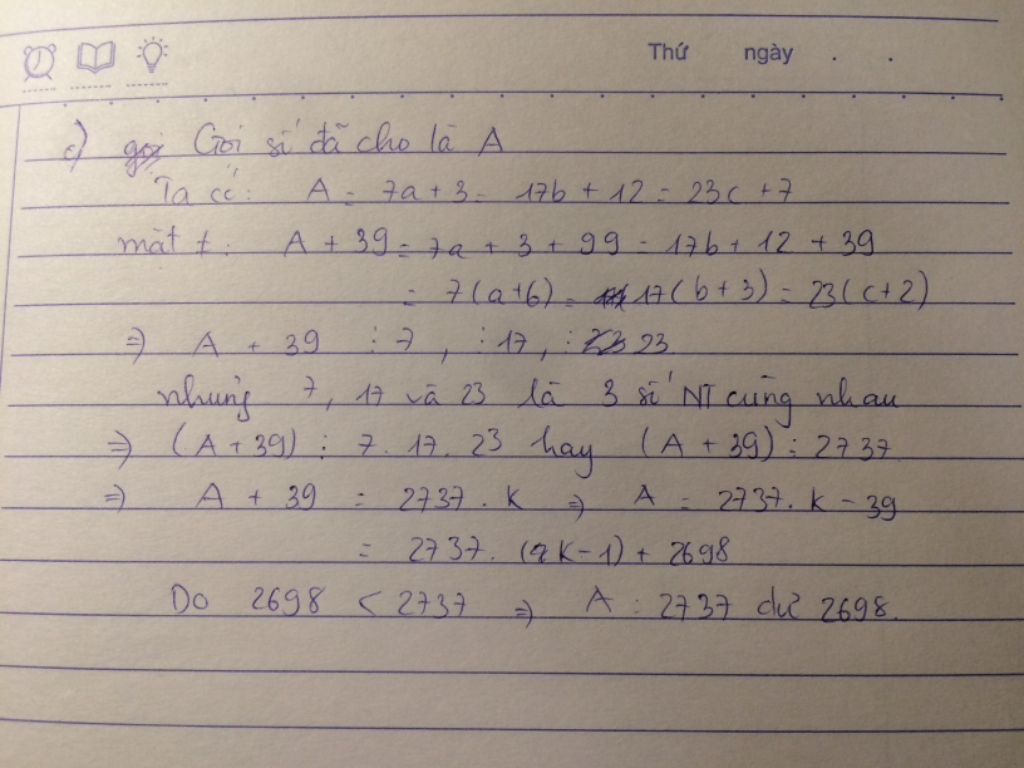 Thứ ngày . .
c) gọi Gọi số đã cho là A
Ta có: A = 7a + 3 = 17b + 12 = 23c + 7
mặt ≠: A + 39 = 7a + 3 + 99 = 17b + 12 + 39
= 7(a+6) = 17(b+3) = 23(c+2)
=> A + 39 ⋮ 7, ⋮ 17, ⋮ 23 23
nhưng 7, 17 và 23 là 3 số NT cùng nhau
=> (A + 39) ⋮ 7. 17. 23 hay (A + 39) ⋮ 2737
=> A + 39 = 2737. k => A = 2737. k - 39
= 2737. (k-1) + 2698
Do 2698 < 2737 => A : 2737 dư 2698.